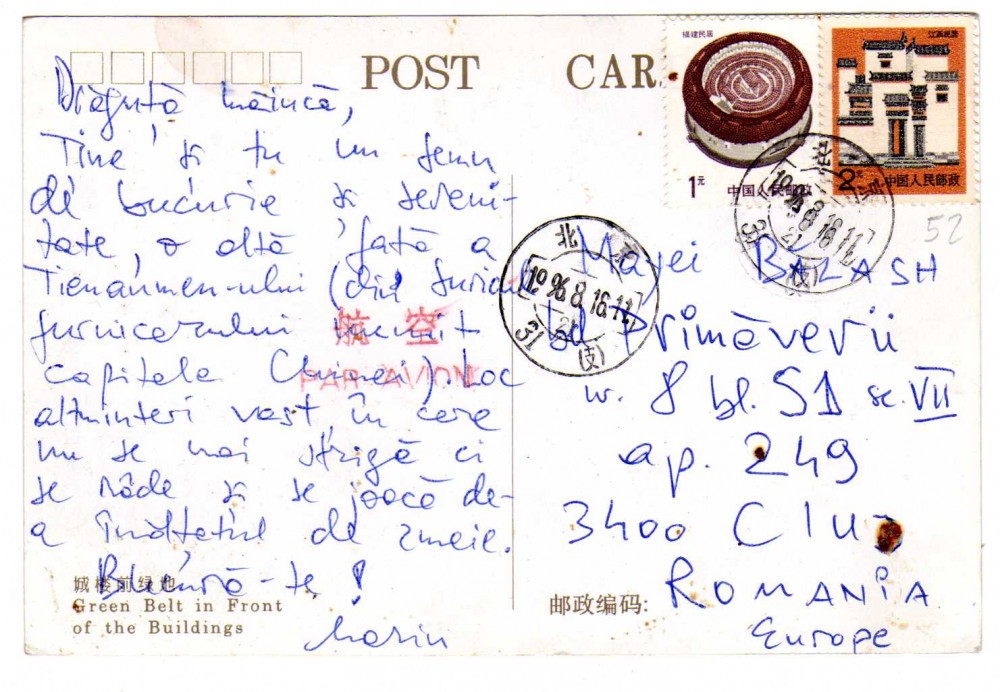 POST CARD
福建民居
1元
中国人民邮政
江西民居
2元
中国人民邮政
52
Drăguță măincă,
Tine și tu un semn
de bucurie și sereni-
tate, o altă față a
Tienanmen-ului (din
furnicarului numit
capitala Chinei). Loc
altminteri vast, în care
nu se mai strigă ci
se râde și se joacă de-
a înălțatul de zmeie.
!
Marin
航空
PAR AVION
北京
1996.8.16.11
31
(支)
北京
1996.8.16.11
31
(支)
BALASH
Bd Primăverii
nr. 8 bl. S1 sc. VII
ap. 249
3400 Cluj
ROMANIA
Europe
城楼前绿地
Green Belt in Front
of the Buildings
邮政编码: